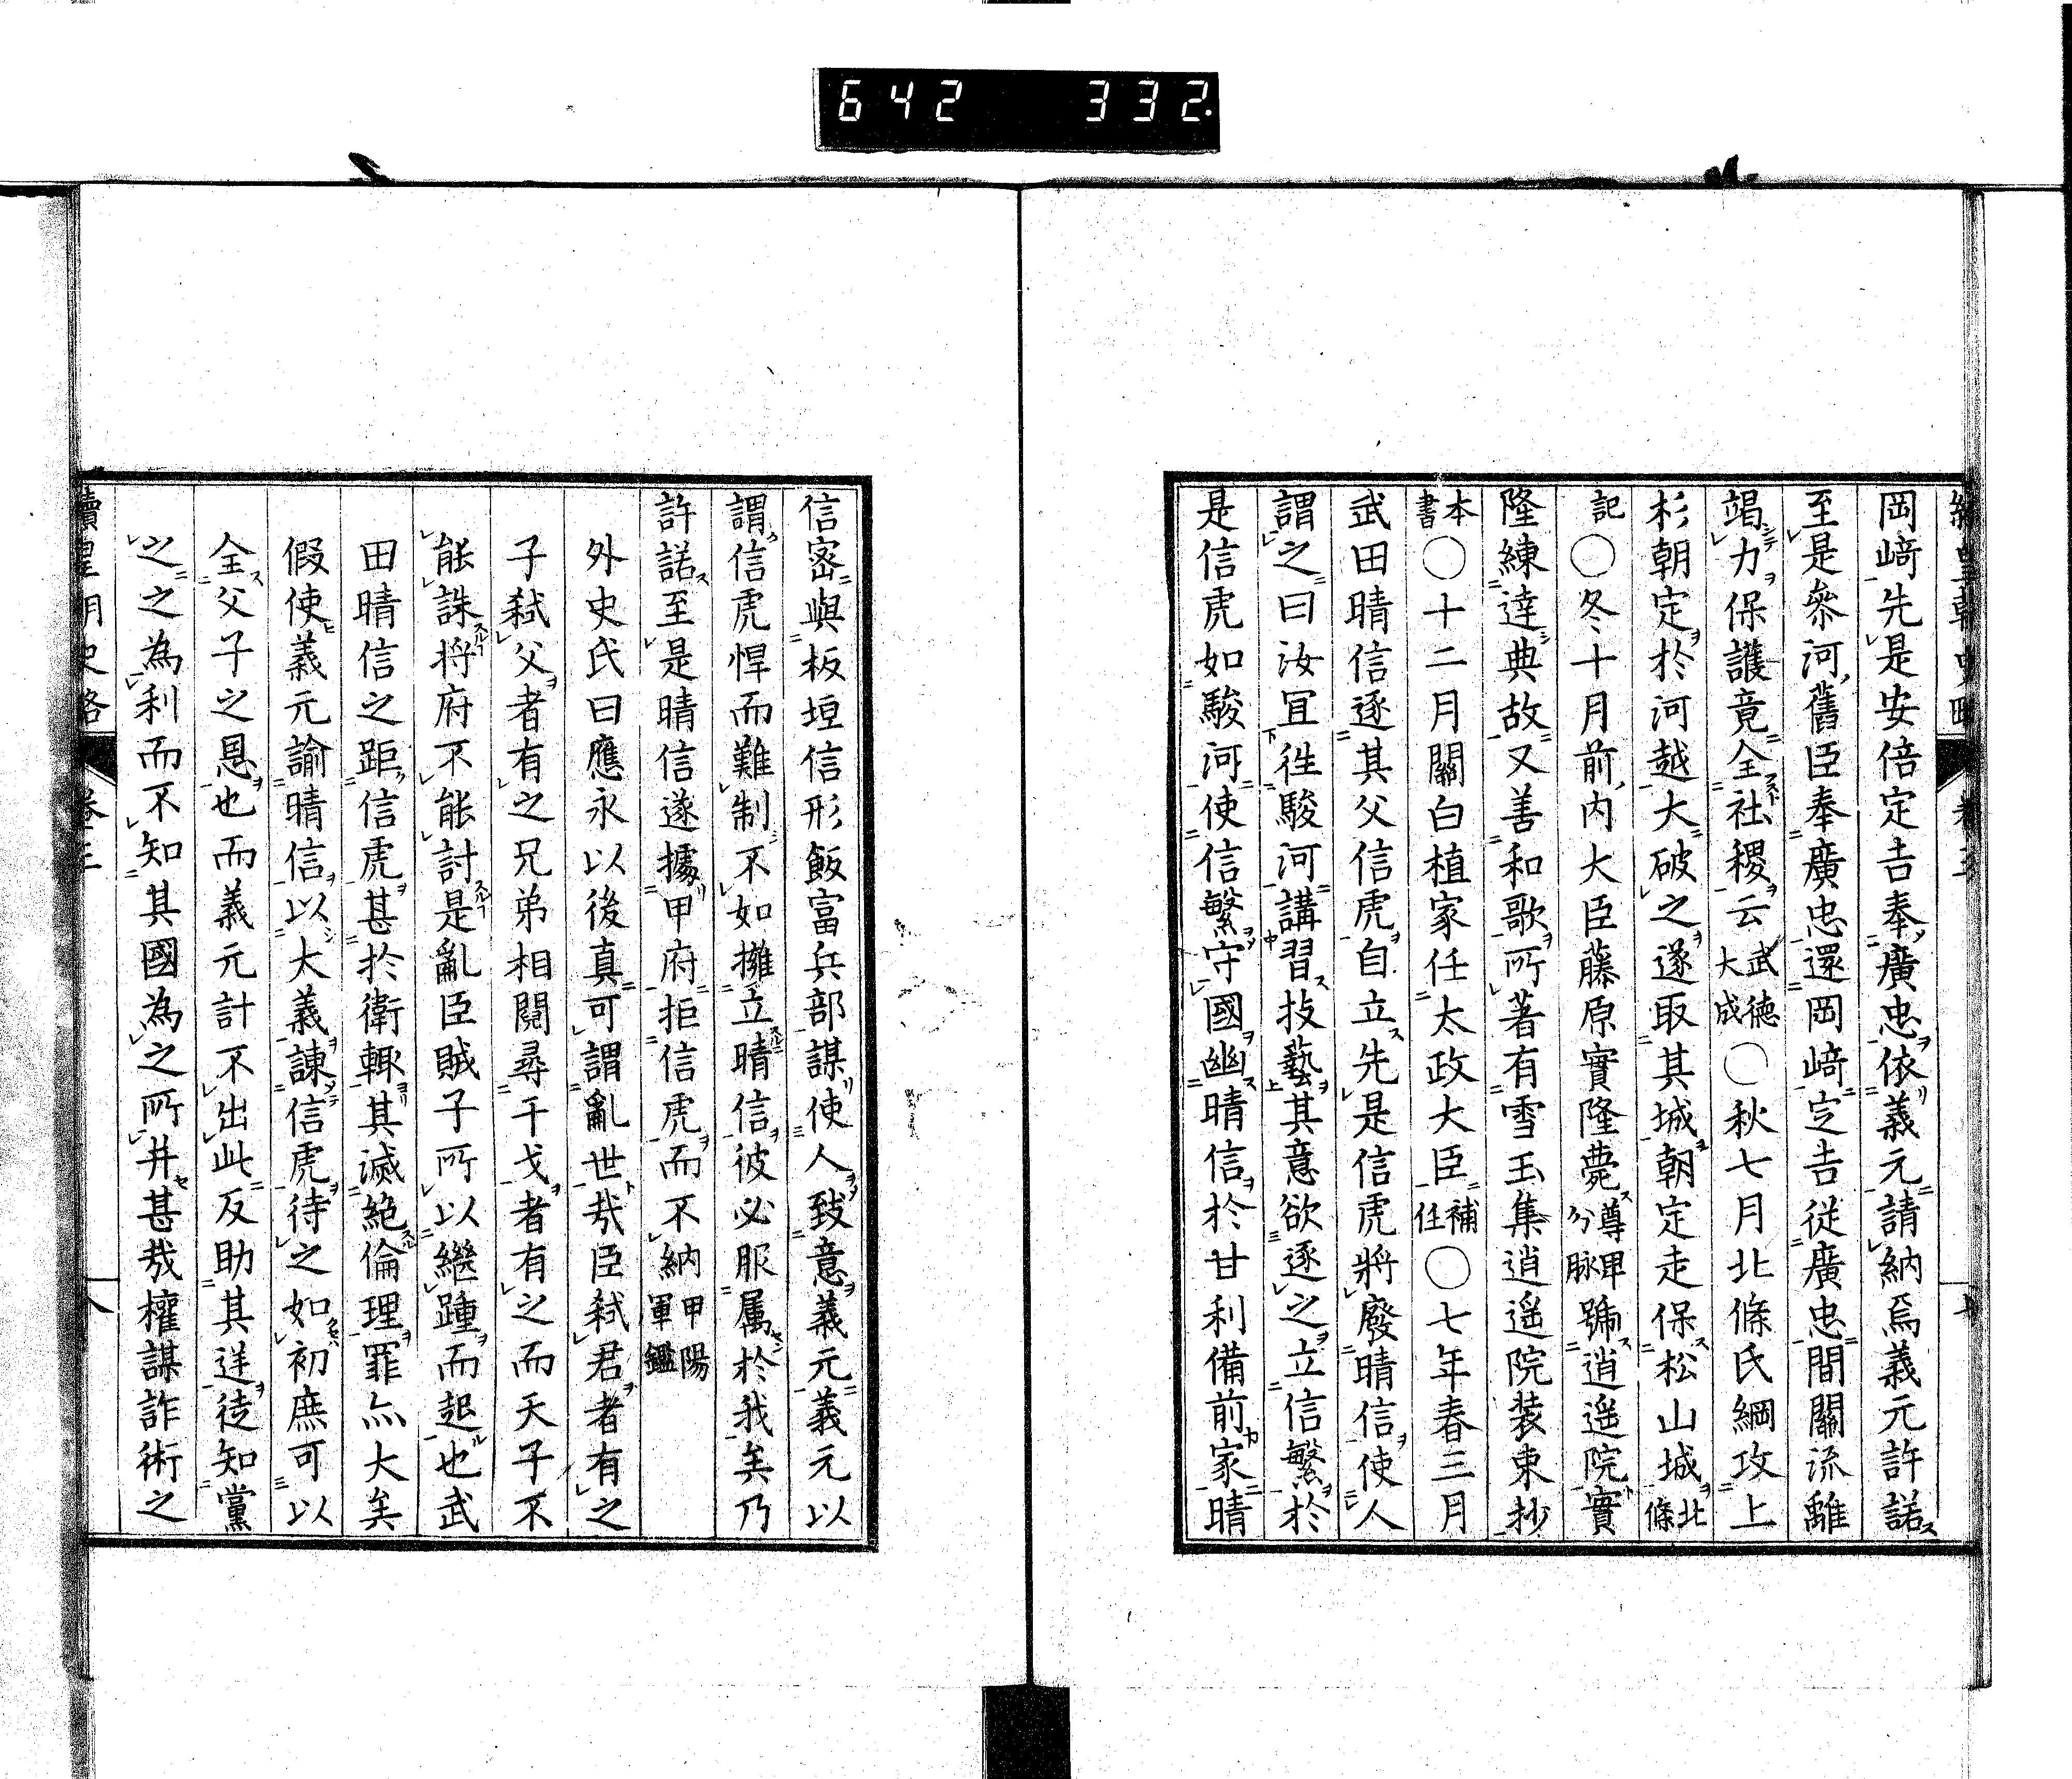 642 332.
岡﨑先是安倍定吉奉廣忠依義元請納焉義元許諾
至是參河舊臣奉廣忠還岡﨑定吉從廣忠間關流離
竭力保護竟全社稷云武德大成○秋七月北條氏綱攻上
杉朝定於河越大破之遂取其城朝定走保松山城北條
記○冬十月前內大臣藤原實隆薨尊卑分脉號逍遥院實
隆練達典故又善和歌所著有雪玉集逍遥院装束抄
本書○十二月關白植家任太政大臣補任○七年春三月
武田晴信逐其父信虎自立先是信虎將廢晴信使人
謂之曰汝宜往駿河講習技藝其意欲逐之立信繁於
是信虎如駿河使信繁守國幽晴信於甘利備前家晴
信密與板垣信形飯富兵部謀使人致意義元義元以
謂信虎悍而難制不如擁立晴信彼必服属於我矣乃
許諾至是晴信遂據甲府拒信虎而不納甲陽軍鑑
外史氏曰應永以後真可謂亂世哉臣弑君者有之
子弑父者有之兄弟相鬩尋干戈者有之而天子不
能誅将府不能討是亂臣賊子所以繼踵而起也武
田晴信之距信虎甚於衛輒其滅絶倫理罪亦大矣
假使義元諭晴信以大義諫信虎待之如初庶可以
全父子之恩也而義元計不出此反助其逆徒知黨
之之為利而不知其國為之所并甚哉權謀詐術之
續皇朝史略 卷三 八